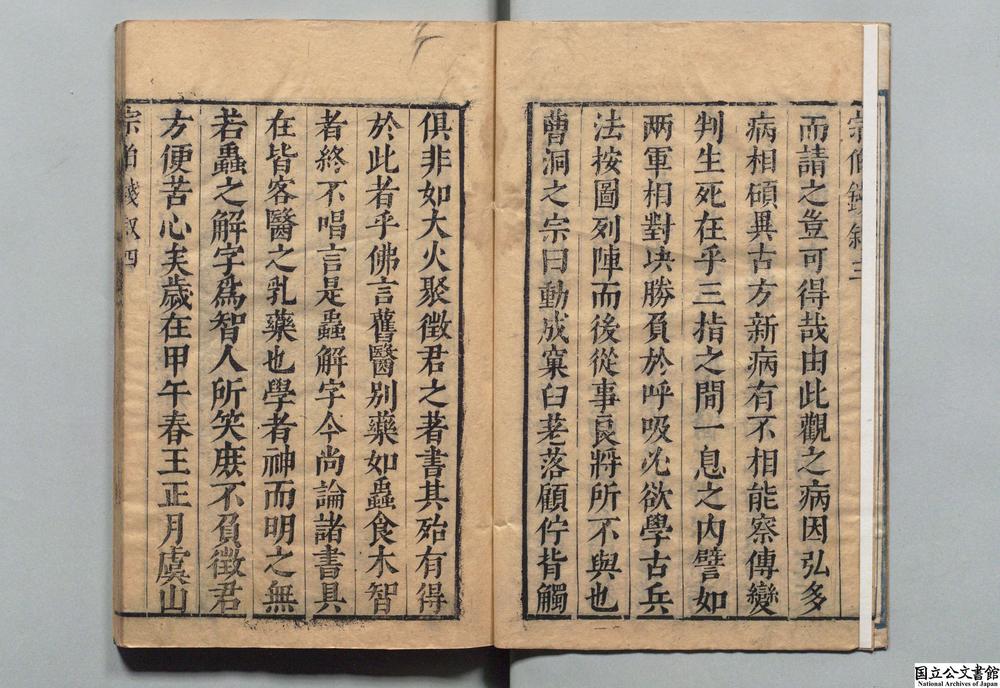 而請之豈可得哉由此觀之病因弘多
病相碩異古方新病有不相能察傳變
判生死在乎三指之間一息之内譬如
兩军相對决勝負於呼吸必欲學古兵
法按圖列陣而後從事良將所不與也
曹洞之宗曰動成窠臼差落顧佇背觸
俱非如大火聚徵君之著書其殆有得
於此者乎佛言舊醫別藥如蟲食木智
者終不唱言是蟲解字今尚論諸書具
在皆客醫之乳藥也學者神而明之無
若蟲之解字爲智人所笑庶不負徵君
方便苦心矣歲在甲午春王正月虞山
国立公文書館
National Archives of Japan